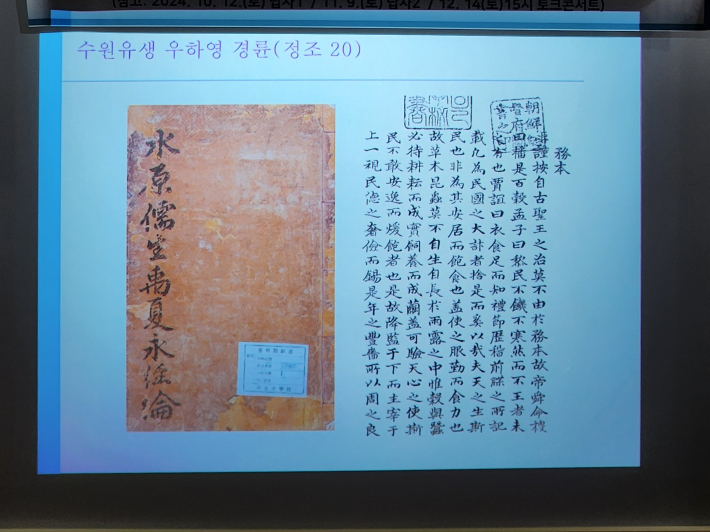 (참고: 2024. 10. 12.(토) 답사1 / 11. 9.(토) 답사2 / 12. 14(토)15시 토크콘서트)
수원유생 우하영 경륜(정조 20)
水原儒生禹夏永經綸
務本
謹按自古聖王之治莫不由於務本故帝舜命稷
曰播是百穀孟子曰黎民不饑不寒然而不王者未
有也賈誼曰衣食足而知禮節歷稽前諜之所記
載凡爲民國之大計者捨是而奚以哉夫天之生斯
民也非爲其安居而飽食也蓋使之服勤而食力也
故草木昆蟲莫不自生自長於雨露之中惟穀與蠶
必待耕耘而成實飼養而成繭蓋可驗天心之使斯
民不敢安逸而煖飽者也是故降監于下而主宰于
上一視民德之奢儉而錫是年之豐嗇所以周之良